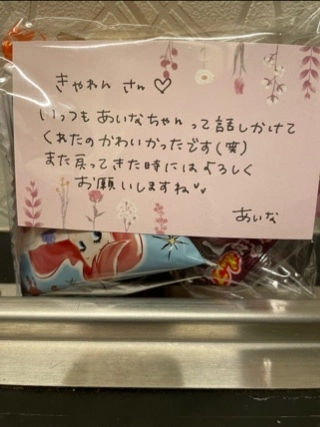 きゃれん さん♡
いっつも あいなちゃん って話しかけて
くれたの かわいかったです(笑)
また戻ってきた時には よろしく
お願いしますね♡♡
あいな